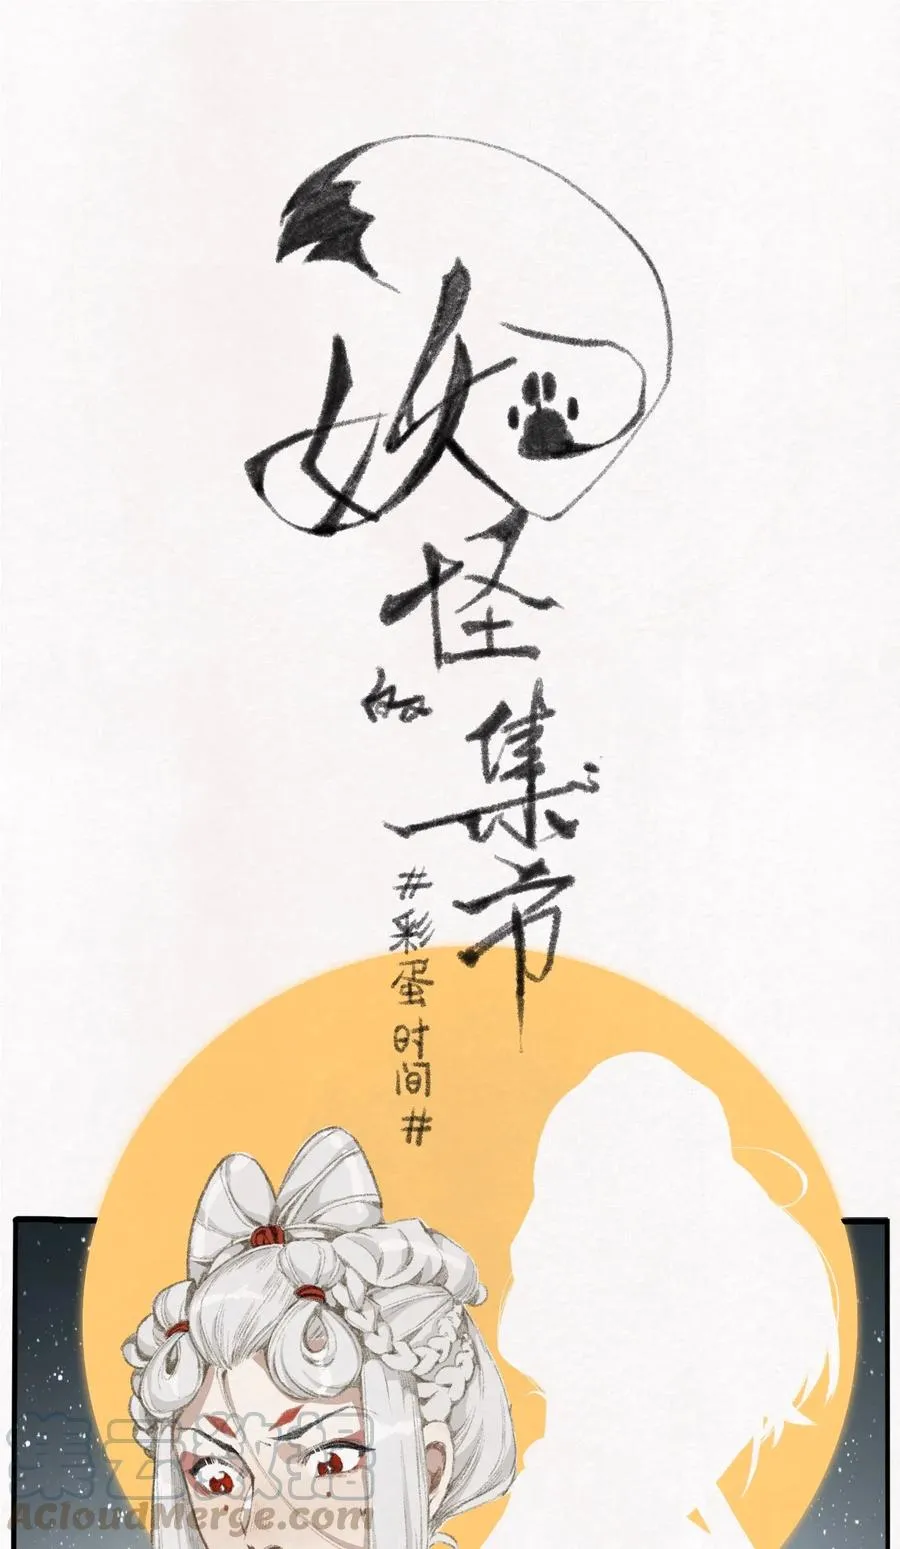 妖怪的集市
#彩蛋时间#
集云数据
ACloudMerge.com